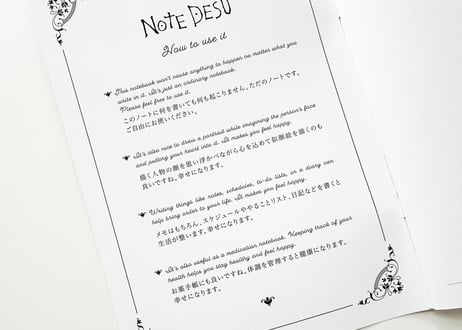 NOTE DESU
How to use it
This notebook won't cause anything to happen no matter what you
write in it. It's just an ordinary notebook.
Please feel free to use it.
このノートに何を書いても何も起こりません。ただのノートです。
ご自由にお使いください。
It's also nice to draw a portrait while imagining the person's face
and putting your heart into it. It makes you feel happy.
描く人物の顔を思い浮かべながら心を込めて似顔絵を描くのも
良いですね。幸せになります。
Writing things like notes, schedules, to-do lists, or a diary can
help bring order to your life. It makes you feel happy.
メモはもちろん、スケジュールややることリスト、日記などを書くと
生活が整います。幸せになります。
It's also useful as a medication notebook. Keeping track of your
health helps you stay healthy and feel happy.
お薬手帳にも良いですね。体調を管理すると健康になります。
幸せになります。